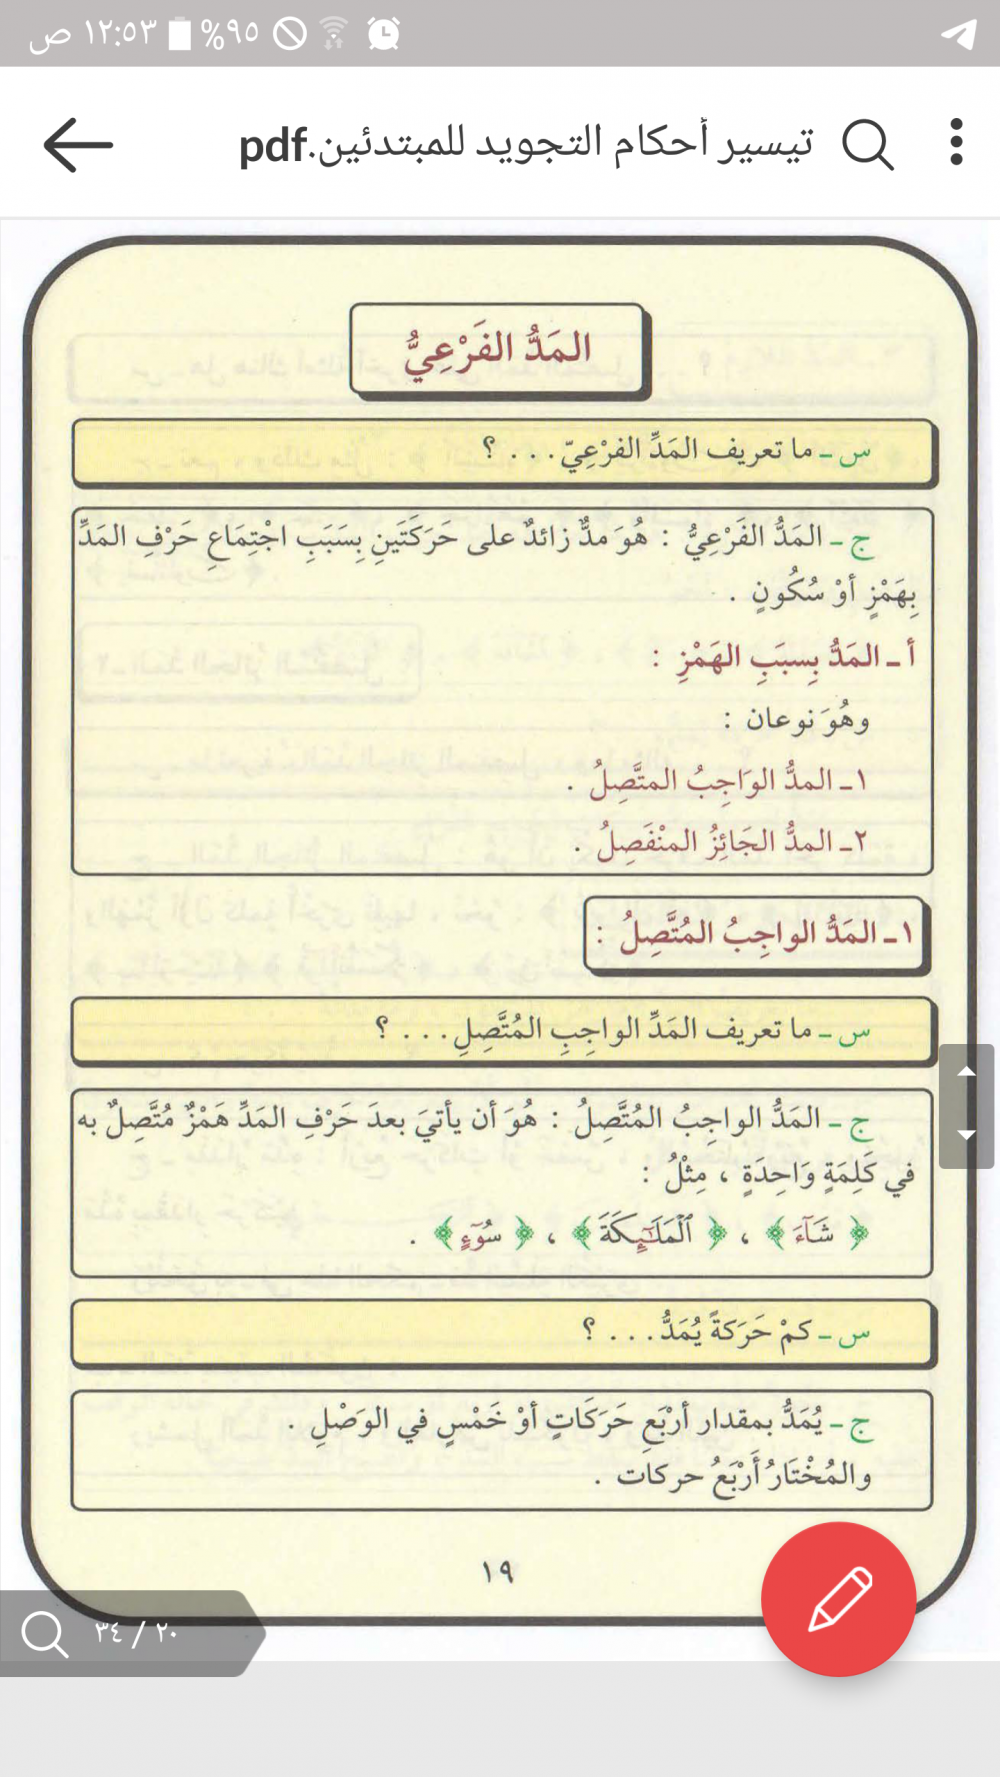 ١٢:٥٣ ص
٩٥%
تيسير أحكام التجويد للمبتدئين.pdf
المَدُّ الفَرْعِيُّ
س - ما تعريف المَدِّ الفرْعِيّ . . . ؟
ج - المَدُّ الفَرْعِيُّ : هُوَ مدٌّ زائدٌ على حَرَكَتَينِ بِسَبَبِ اجْتِمَاعِ حَرْفِ المَدِّ
بِهَمْزٍ أوْ سُكُونٍ .
أ - المَدُّ بِسبَبِ الهَمْزِ :
وهُوَ نوعان :
١- المدُّ الوَاجِبُ المتَّصِلُ .
٢- المدُّ الجَائِزُ المنْفَصِلُ .
١- المَدُّ الواجِبُ المُتَّصِلُ :
س - ما تعريف المَدِّ الواجِبِ المُتَّصِلِ . . . ؟
ج - المَدُّ الواجِبُ المُتَّصِلُ : هُوَ أن يأتيَ بعدَ حَرْفِ المَدِّ هَمْزٌ مُتَّصِلٌ به
في كَلِمَةٍ وَاحِدَةٍ ، مِثْلُ :
﴿ شَآءَ ﴾ ، ﴿ ٱلْمَلَـٰٓئِكَةَ ﴾ ، ﴿ سُوٓءٍ ﴾ .
س - كمْ حَرَكةً يُمَدُّ . . . ؟
ج - يُمَدُّ بمقدار أرْبَعِ حَرَكَاتٍ أوْ خَمْسٍ في الوَصْلِ .
والمُخْتَارُ أَرْبَعُ حركات .
١٩
٢٠ / ٣٤